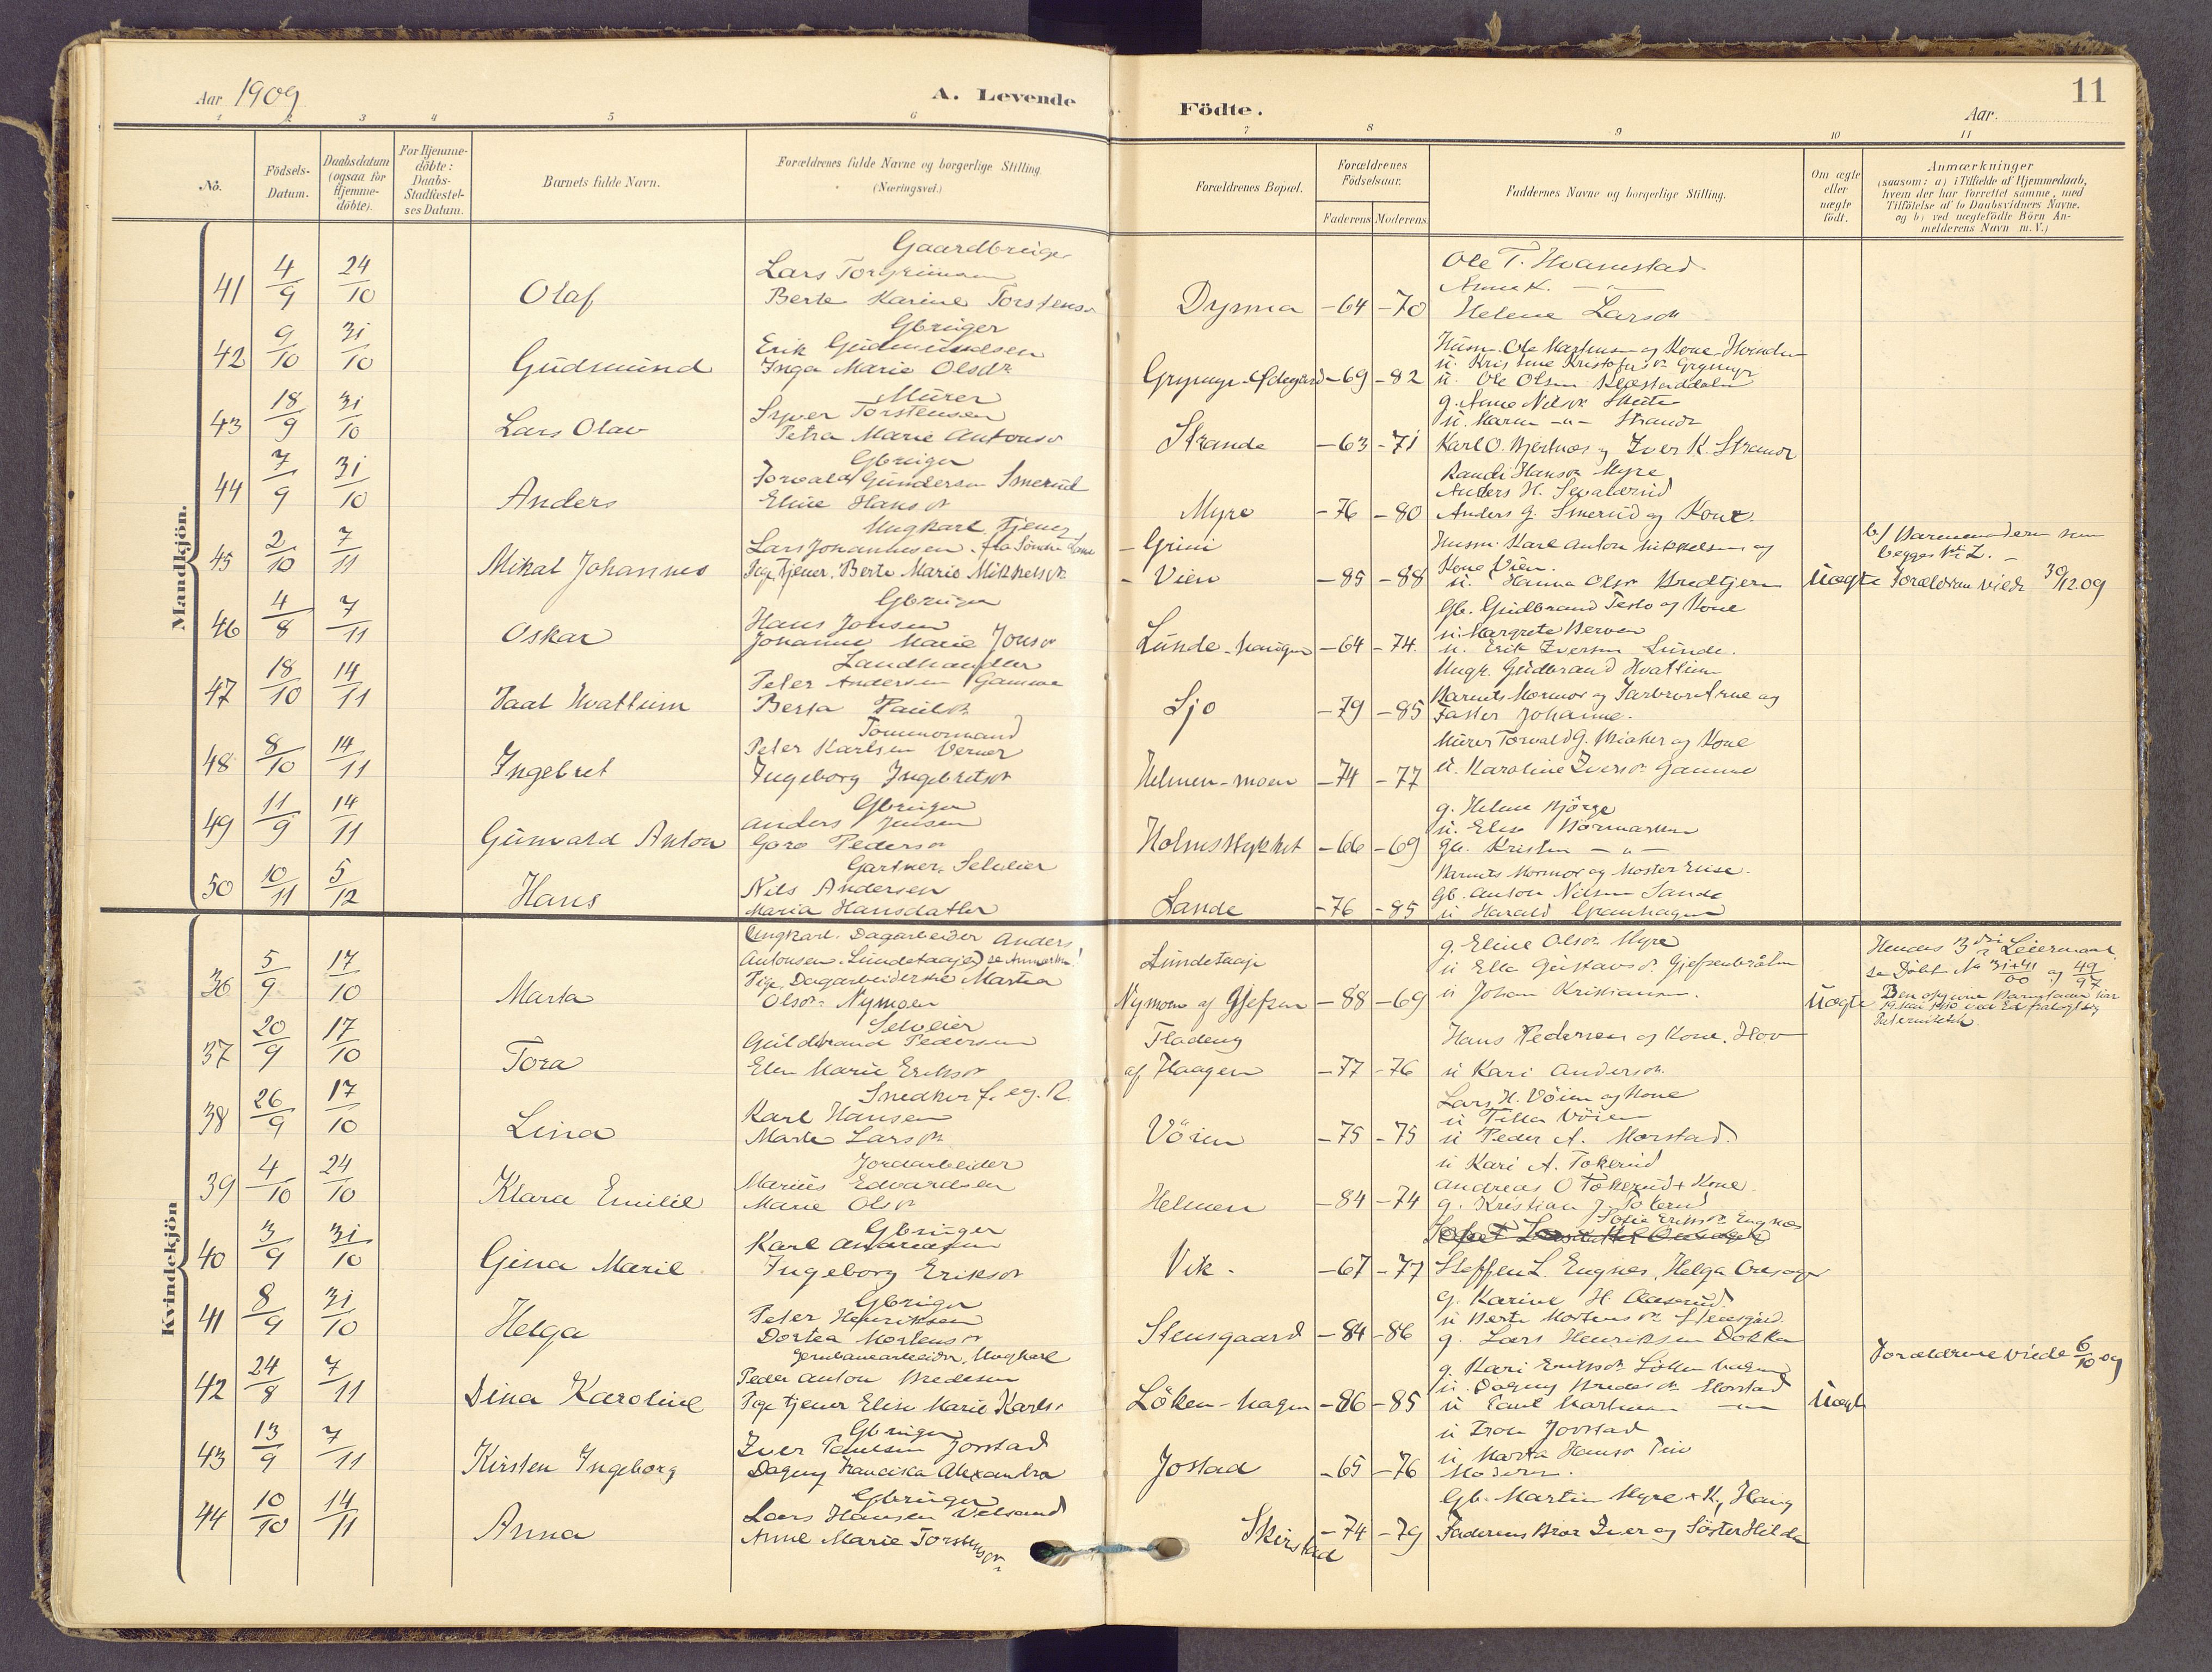 Aar 1909
A. Levende
Födte.
Aar
11
1 2 3 4 5 6 7 8 9 10 11
No.
Födsels-Datum.
Daabsdatum (ogsaa for Hjemme-döbte).
For Hjemme-döbte: Daabs-Stadfæstel-ses Datum.
Barnets fulde Navn.
Forældrenes fulde Navne og borgerlige Stilling (Næringsvei.)
Forældrenes Bopæl.
Forældrenes Födselsaar.
Faderens Moderens
Faddernes Navne og borgerlige Stilling.
Om ægte eller uægte födt.
Anmærkninger
(saasom: a) i Tilfælde af Hjemmedaab, hvem der har forrettet samme, med Tilföielse af to Daabsvidners Navne, og b) ved uægtefödte Börn Anmelderens Navn m.V.)
Mandkjön.
41 4/9 24/10 Olaf
Gaardbruger
Lars Torgrimsen
Berte Karine Torstensdr
Dynna -64 -70
Ole T. Hvamstad
Anne K. - " -
Helene Larsdr
42 9/10 31/10 Gudmund
Gbruger
Erik Gudmundsen
Inga Marie Olsdr
Grymyr-Ødegård -69 -82
u. Ole Olsen
43 18/9 31/10 Lars Olav
Murer
Syver Torstensen
Petra Marie Antonsdr
Strande -63 -71
g. Anne Nilsdr
u. Karen - " - Strande
Karl O. Bjertnæs og Iver K. Strande
44 7/9 31/10 Anders
Gbruger
Torvald Gundersen Smerud
Eline Hansdr
Myre -76 -80
Randi Hansdr Myre
Anders H. Sevalerud
Anders G. Smerud og Kone.
45 2/10 7/11 Mikal Johannes
Ungkarl, Tjener
Lars Johannesen. fra Søndre Land
Pige tjener. Berte Marie Mikkelsdr.
- Grini
- Vien -85 -88
Husm. Karl Anton Mikkelsen og
Kone Vien.
u. Hanna Olsdr Bredtjern
Uægte
b/ Barnemoderen som
begges No 1. -
Forældrene viede 30/12.09
46 4/8 7/11 Oskar
Gbruger
Hans Jonsen
Johanne Marie Jonsdr
Lunde-haugen -64 -74.
Gb. Gudbrand Teslo og Kone
u. Margrete Berven
u. Erik Iversen Lunde.
47 18/10 14/11 Paal Hvattum
Landhandler
Peter Andersen Gamme
Berta Paulsdr
Sjo -79 -85
Ungk. Gudbrand Hvattum
Barnets Mormor og Farbror Arne og
Faster Johanne.
48 8/10 14/11 Ingebret
Tømmermand
Peter Karlsen Verner
Ingeborg Ingebretsdr
Helmen-moen -74 -77
Murer Torvald G. Wiaker og Kone
u. Karoline Iversdr Gamme
49 11/9 14/11 Gunvald Anton
Gbruger
Anders Jensen
Goro Pedersdr
Holmstykket -66 -69
g. Helene Bjørge
u. Elise Børmarken
gb. Kristen - " -
50 10/11 5/12 Hans
Gartner, Selveier
Nils Andersen
Maria Hansdatter
Sande -76 -85
Barnets Mormor og Moster Elise.
Gb. Anton Nilsen Sande
u Harald Granhagen
Kvindekjön
36 5/9 17/10 Marta
Ungkarl. Dagarbeider Anders
Antonsen. Lundetaajet) se Anmærkn!
Pige, Dagarbeiderske Martea
Olsdr. Nymoen
Lundetaaje
Nymoen af Gjefsen -88 -69
g. Eline Olsdr. Myre
u Ella Gustavsdr. Gjefsenbråten
u Johan Kristiansen.
Uægte
Hendes 3die Leiermaal
se Döbte No 31+41/00 og 49/97
37 20/9 17/10 Tora
Selveier
Guldbrand Pedersen
Elen Marie Eriksdr
Fladeng
af Haagen -77 -76
Hans Pedersen og Kone. Hov
u Kari Andersdr.
38 26/9 17/10 Lina
Snedker f. eg. R.
Karl Hansen
Marte Larsdr
Vöien -75 -75
Lars H. Vöien og Kone
u Tilla Vöien
u Peder A. Morstad.
39 4/10 24/10 Klara Emilie
Jordarbeider
Marius Edvardsen
Marie Olsdr
Helmen -84 -74
u Kari A. Tokerud
Andreas O Tokerud + Kone.
g. Kristian J. Tokerud
40 3/9 31/10 Gina Marie
Gbruger
Karl Andreasen
Ingeborg Eriksdr
Vik. -67 -77
Sofie Eriksdr. Engnæs
Steffen L. Engnes, Helga Oresager
41 8/9 31/10 Helga
Gbruger
Peter Henriksen
Dortea Mortensdr
Stensgaard -84 -86
g. Karine H. Aaserud.
u Berte Mortensdr. Stensgård.
g. Lars Henriksen Dokka
42 24/8 7/11 Dina Karoline
Jernbanearbeider. Ungkarl
Peder Anton Bredesen
Pige tjener Elise Marie Karls.
Löken-hagen -86 -85
g. Kari Eriksdr Löken-hagen
u. Dagny Bredesdr. Morstad
u Paul Martinsen - " -
Uægte
Forældrene viede 6/10 09
43 13/9 7/11 Kirsten Ingeborg
Gbruger
Iver Paulsen Jorstad
Dagny Franciska Alexandra
Jostad -65 -76
u Tron Jorstad
u Marta Hansdr
Moderen.
44 10/10 14/11 Anna
Gbruger
Lars Hansen Velsand
Anne Marie Torstensdr.
Skirstad -74 -79
Gb. Martin Myre + K., Haug
Faderens Bror Iver og Söster Hilda